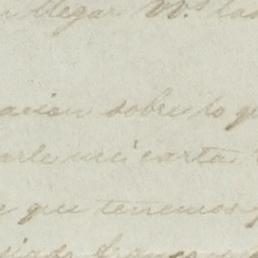 llegar VV.s las
acion sobre lo q
arle mi carta
e que tenemos